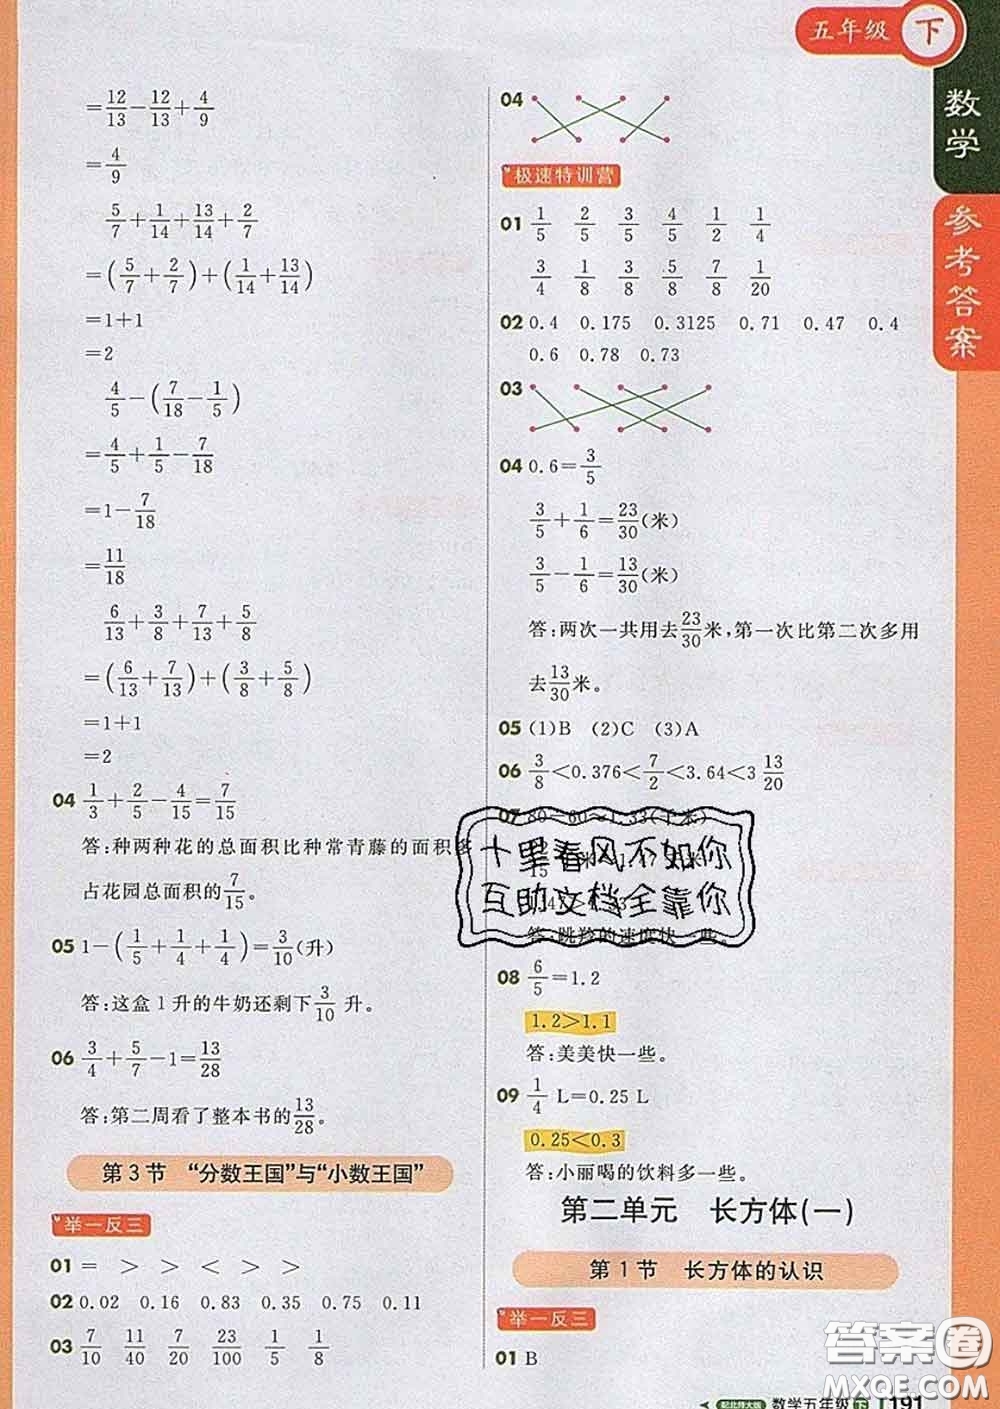 五年级 下
数学
参考答案
=12/13-12/13+4/9
=4/9
5/7+1/14+13/14+2/7
=(5/7+2/7)+(1/14+13/14)
=1+1
=2
4/5-(7/18-1/5)
=4/5+1/5-7/18
=1-7/18
=11/18
6/13+3/8+7/13+5/8
=(6/13+7/13)+(3/8+5/8)
=1+1
=2
04 1/3+2/5-4/15=7/15
答:种两种花的总面积比种常青藤的面积多
占花园总面积的7/15。
05 1-(1/5+1/4+1/4)=3/10(升)
答:这盒1升的牛奶还剩下3/10升。
06 3/4+5/7-1=13/28
答:第二周看了整本书的13/28。
第3节 “分数王国”与“小数王国”
举一反三
01 = > > < < >
02 0.02 0.16 0.83 0.35 0.75 0.11
03 7/10 11/40 7/20 23/100 1/5 1/8
04
极速特训营
01 1/5 2/5 3/5 4/5 1/2 1/4
3/4 1/8 3/8 5/8 7/8 1/20
02 0.4 0.175 0.3125 0.71 0.47 0.4
0.6 0.78 0.73
03
04 0.6=3/5
3/5+1/6=23/30(米)
3/5-1/6=13/30(米)
答:两次一共用去23/30米,第一次比第二次多用
去13/30米。
05 (1)B (2)C (3)A
06 3/8<0.376<7/2<3.64<3 13/20
07 80÷60≈1.33(千米)
十里春风不如你
互助文档全靠你
答:跳羚的速度快一些。
08 6/5=1.2
1.2>1.1
答:美美快一些。
09 1/4 L=0.25 L
0.25<0.3
答:小丽喝的饮料多一些。
第二单元 长方体(一)
第1节 长方体的认识
举一反三
01 B
配北师大版 数学五年级 下 191
答案圈
MXQE.COM